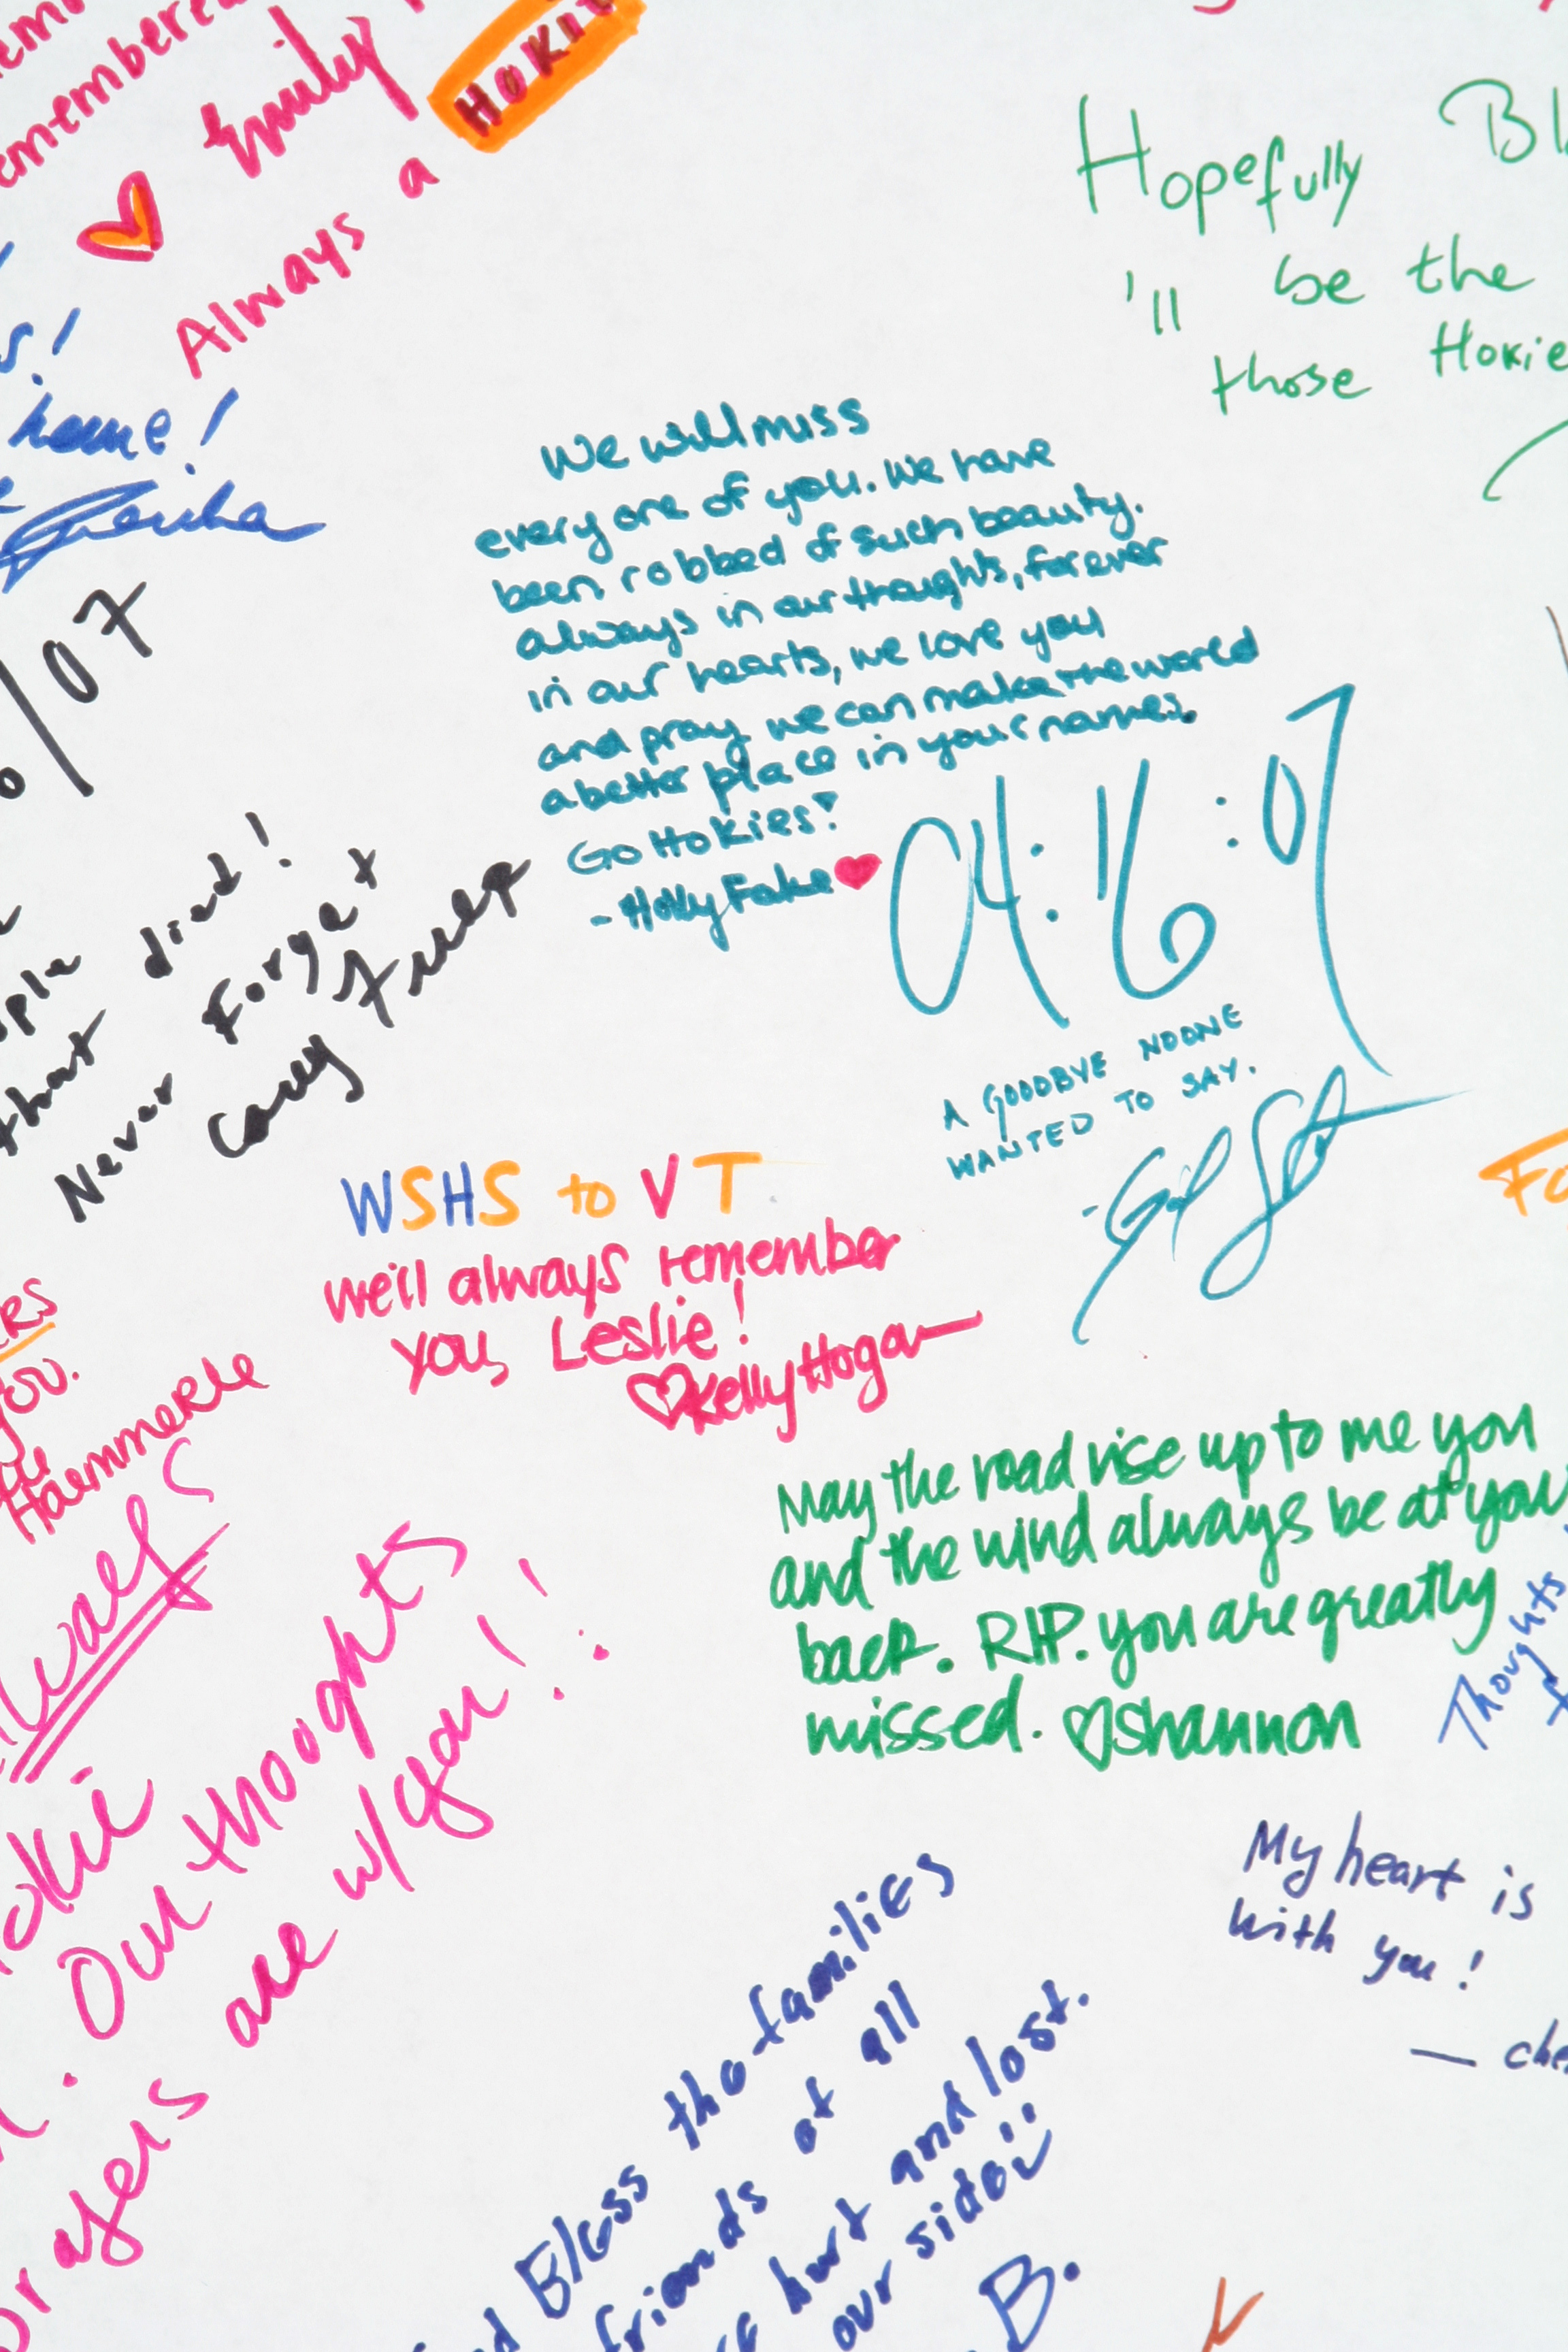 emembered
♥ Emily
Always a HOKIE
Hopefully
'll be the
those Hokie
s!
home!
/07
We will miss
everyone of you. We have
been robbed of such beauty.
always in our thoughts, forever
in our hearts, we love you
and pray we can make the world
a better place in your names.
Go Hokies!
- Holly Fake ♥
04:16:07
A GOODBYE NOONE
WANTED TO SAY.
died!
that
Never Forget
WSHS to VT
we'll always remember
you, Leslie!
♡ Kelly Hogan
you.
Haemmerle
May the road rise up to me you
and the wind always be at your
back. RIP. you are greatly
missed. ♡ Shannon
Thoughts
Our thoughts
are w/ you!
My heart is
with you!
Bless the families
friends of all
hurt and lost.
our side
B.